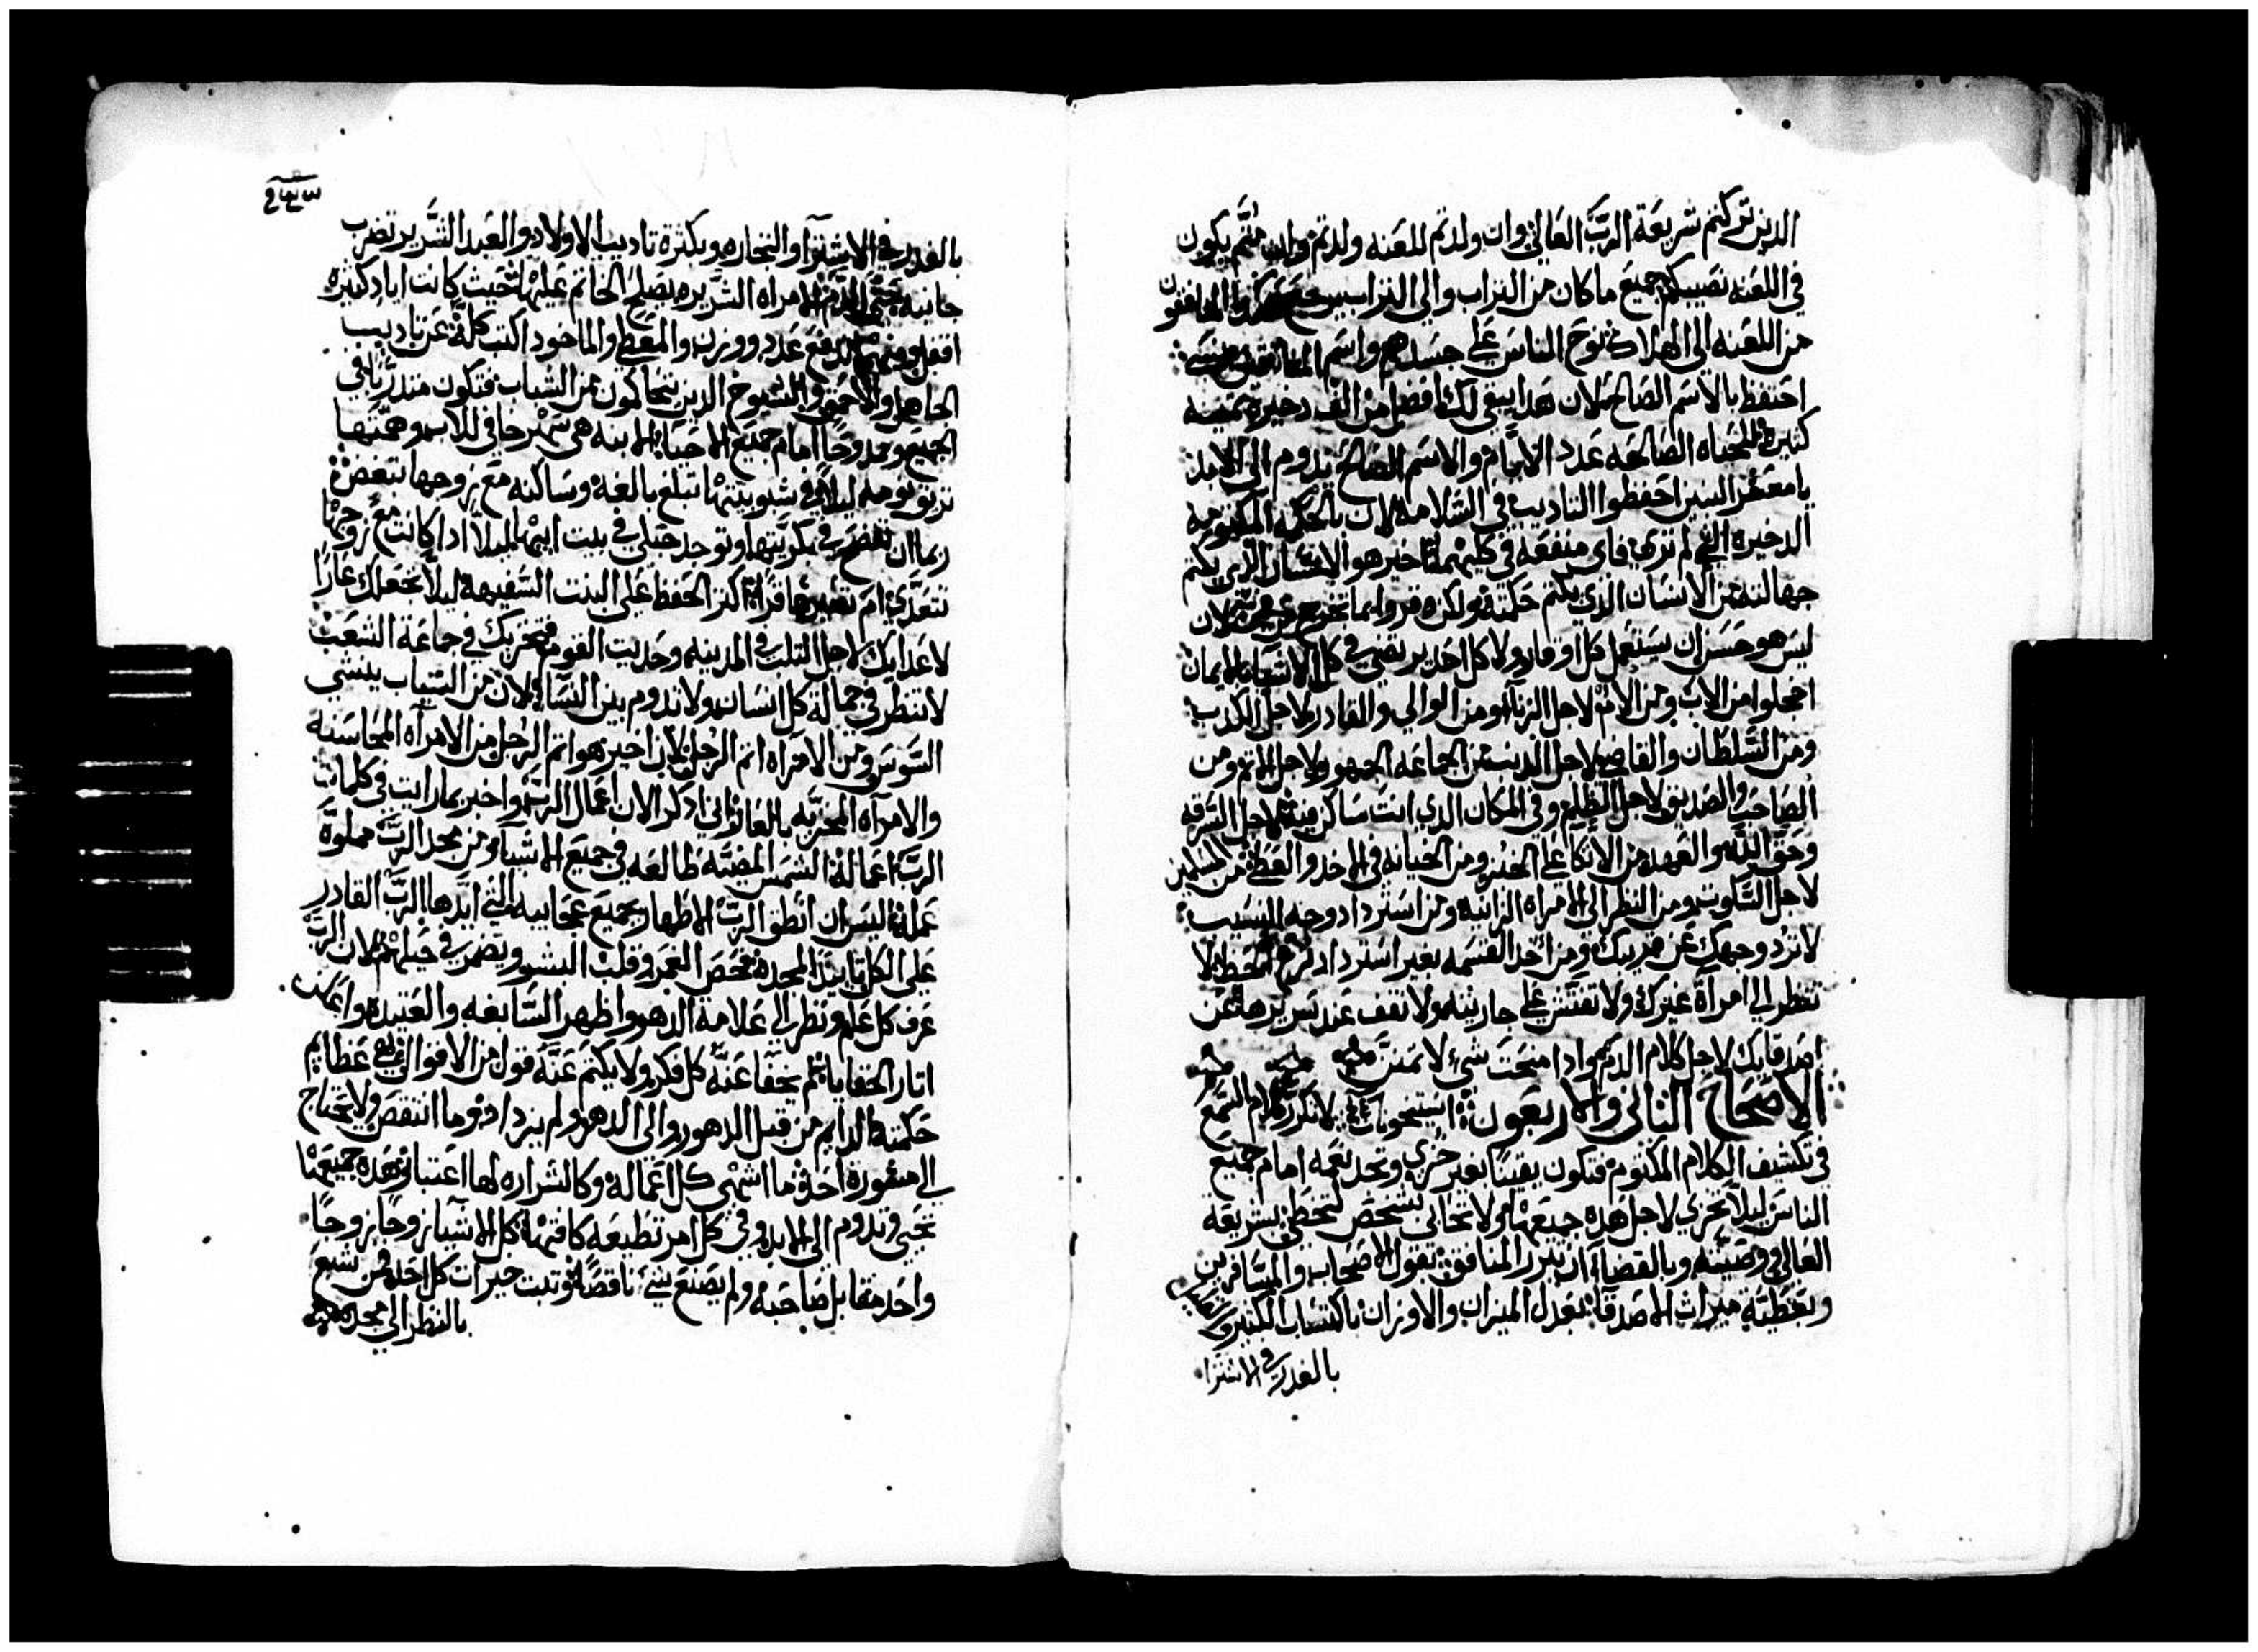 الدين تركتم شريعة الربَّ العالي وان ولدتم للعنه ولدتم وان متم يكون
في اللعنه نصيبكم جميع ما كان من التراب والي التراب يرجع المنافقون
من اللعنه الى الهلاك نوح الناس علي جسدهم واسم المنافقين
احتفظ بالاسم الصالح لان هدا يبقي لك افضل من الف دخيره تمينه
كبيره للحياه الصالحه عدد الايام والاسم الصالح يدوم الى الابد
يا معشر البنين احفظوا التاديب في السلامه لان الحكمه المكتومه
الدخيره التي لم تري فاي منفعه في كليهما خير هو الانسان الدي يكتم
جهالته من الانسان الدي يكتم حكمته ولكن لان
ليس هو حسن ان يستعمل كل اوقار ولا كل احد يرتضي في كل الاشيا بالايمان
اخجلوا من الاب ومن الام لاجل الزنا ومن الوالي والقادر لاجل الكدب
ومن السلطان والقاضي لاجل الدنب من الجماعه الجمهور لاجل الاتم ومن
الصاحب والصديق لاجل الظلم وفي المكان الدي انت ساكن فيه لاجل السرقه
وحق الله والعهد من الاتكا علي الخبز ومن الخيانه في الاخد والعطا من المسلمين
لاجل السكوت ومن النظر الى الامراه الزانيه ومن استرداد وجه النسيب
لا ترد وجهك عن قريبك ومن اخد القسمه بغير استرداد لا
تنظر الي امرأة غيرك ولا تفتش علي جاريته ولا تقف عند سريرها من
اصدقايك لاجل كلام الدم وادا منحت شيء لا تمنن
الاصحاح التاني والاربعون استيخونات لا تكرر كلام السمع
في تكشيف الكلام المكتوم فتكون يقينًا بغير خزي وتجد نعمه امام جميع
الناس ليلا تخزي لاجل هده جميعها ولا تحابي بشخص لتخطي بشريعة
العالي ووصيته وبالقضا ان تبرر المنافق بقول الاصحاب والمسافرين
وبعطية ميراث الاصدقا بعدل الميزان والاوزان باكتساب الكتير والقليل
بالغدر في الاشترا
بالغدر في الاشترآ والتجاره وبكترة تاديب الاولاد والعبد الشرير تضرب
جانبه حتي الدم الامراه الشريره يصلح الخاتم عليها حيت كانت اياد كتيره
اقفل ومهما تدفع عدد ووزن والمعطي والماخود اكتب كله عن تاديب
الجاهل والاحمق والشيوخ الدين يتحاكمون من الشباب فتكون متدربًا في
الجميع وممدوحًا امام جميع الاحيا الابنه هي سهر خافي للاب وهمتها
تزيق نومه ليلا في شبوبيتها تبلغ بالغه وساكنه مع زوجها تبغض
ربما ان تفتضح في بكريتها وتوجد حبلي في بيت ابيها ليلا ادا كانت مع زوجها
تتعدي ام تصير عاقرًا اكتر الحفظ علي البنت السفيهه ليلا تجعلك عارًا
لاعدايك لاجل التلب في المدينه وحديت القوم فتخزيك في جماعة الشعب
لا تنظر في جمال كل انسان ولا تدوم بين النساء لان من التياب ينشي
السوس ومن الامراه اتم الرجل لان اخير هو اتم الرجل من الامرأه المحاسنه
والامرأه المخزيه بالعار اني ادكر الان اعمال الرب واخبر بما رايت في كلمات
الرب اعماله الشمس المضيه طالعه في جميع الاشيآ ومن مجد الربَّ مملوَّه
عمله اليس ان انطق الرب الاطهار بجميع عجايبه التي ايدها الربَّ القادر
علي الكل تاييد المجده فحص العمق وقلب البشر ويضمر في حيلهم لان الربَّ
عرف كل علم ونظر الي علامة الدهر واظهر السابقه والعتيده واعلن
اتار الخفايا لم يخفا عنه كل فكر ولا يكتم عنَّه قول من الاقوال عظايم
حكمته الدايم من قبل الدهور والى الدهر ولم يزداد وما انتقص ولا يحتاج
الي مشورة احد ما اشهى كل اعماله وكالشراره لها اعتبار هده جميعها
تحيي وتدوم الى الابد وفي كل امر تطيعه كافتها كل الاشيا زوجًا زوجًا
واحد مقابل صاحبه ولم يصنع شيء ناقصًا وتبت خيرات كل احد فمن يشبع
بالنظر الي مجده